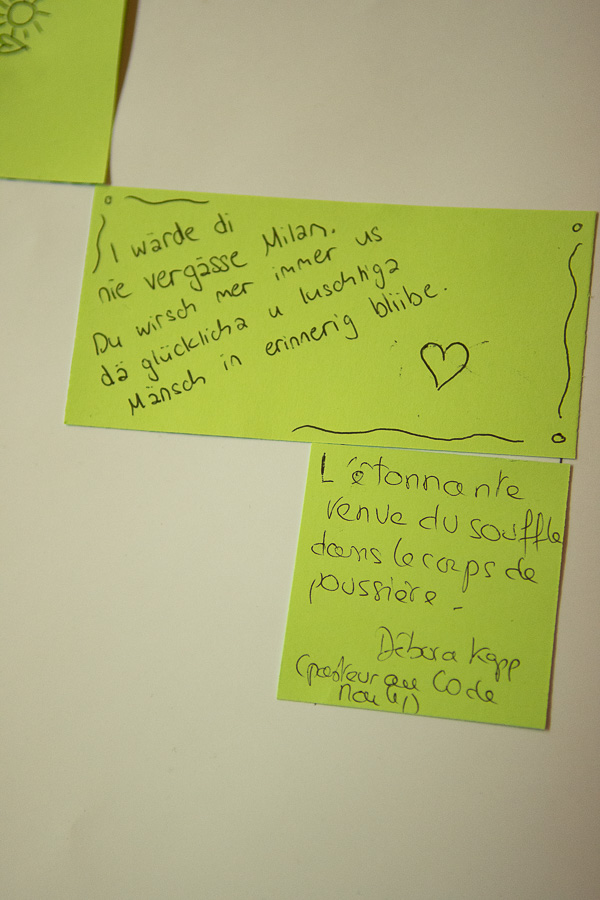 I wärde di
nie vergässe Milan.
Du wirsch mer immer us
dä glücklicha u luschtiga
Mänsch in erinnerig bliibe.
L'étonnante
venue du souffle
dans le corps de
poussière.
Débora Kapp
(pasteur au